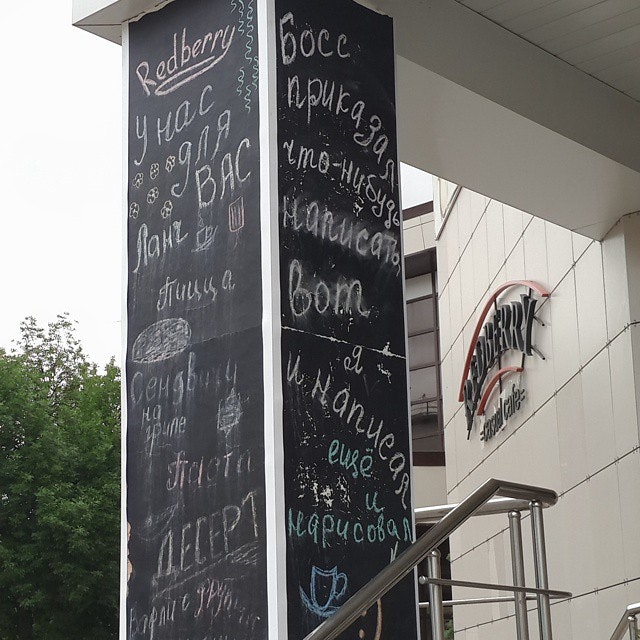 Redberry
у нас
для
ВАС
Ланч
Пицца
Сендвичи
на
гриле
Паста
ДЕСЕРТ
Босс
приказал
что-нибудь
написать
Вот
я
и написал
ещё
и
нарисовал
REDBERRY